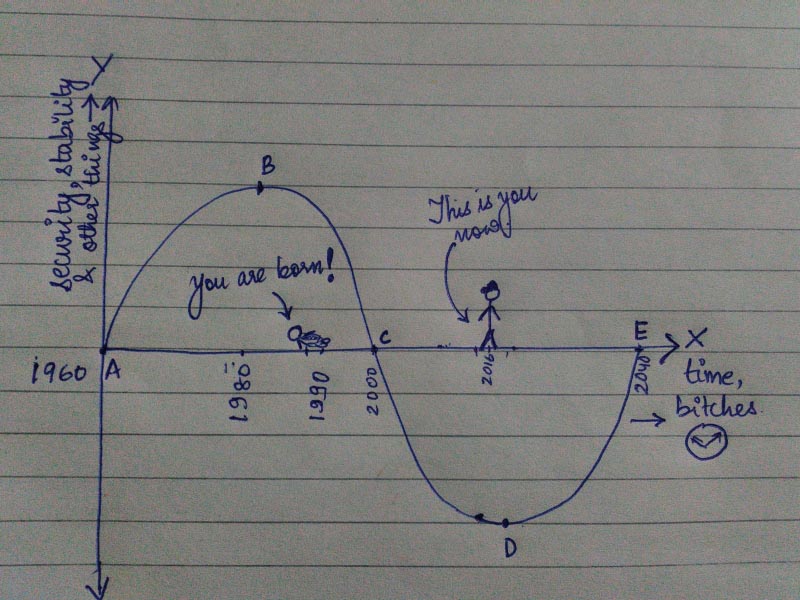 Y
security, stability
& other things →
B
This is you
now
you are born!
A
C
E
X
1960
1980
1990
2000
2016
2040
time,
bitches.
D